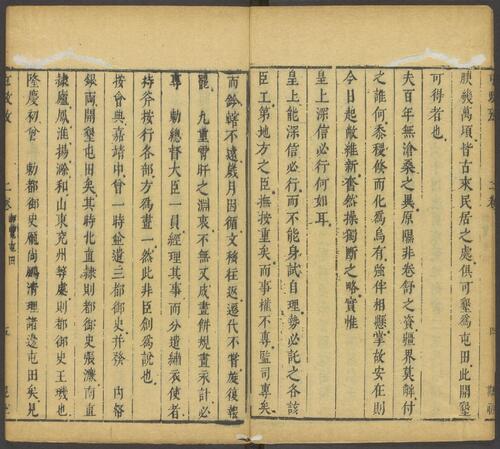 腴幾萬頃皆古來民居之處俱可墾爲屯田此開墾
可得者也
夫百年無滄桑之異原隰非卷舒之資疆界莫辭付
之誰何黍稷倐而化爲烏有強伴相懸掌故安在則
今日起敝維新奮然操獨斷之略實惟
皇上深信必行何如耳
皇上能深信必行而不能身試自理勢必託之各該
臣工第地方之臣撫按重矣而事權不專監司專矣
而鈐轄不遠歲月因循文移往返遞代不嘗旋後報
罷 九重霄旰之淵衷不無又成畫餅規畫永計必
專 勅總督大臣一員經理其事而分遣繡衣使者
持斧按行各部方爲畫一然此非臣創爲說也
按會典嘉靖中曾一時並遣三都御史並務 內帑
銀兩開墾屯田矣其時北直隸則都御史張濂南直
隸廬鳳淮揚滁和山東兖州等處則都御史王璣也
隆慶初曾 勅都御史龐尚鵬清理諸邊屯田矣見
二卷
屯田
五